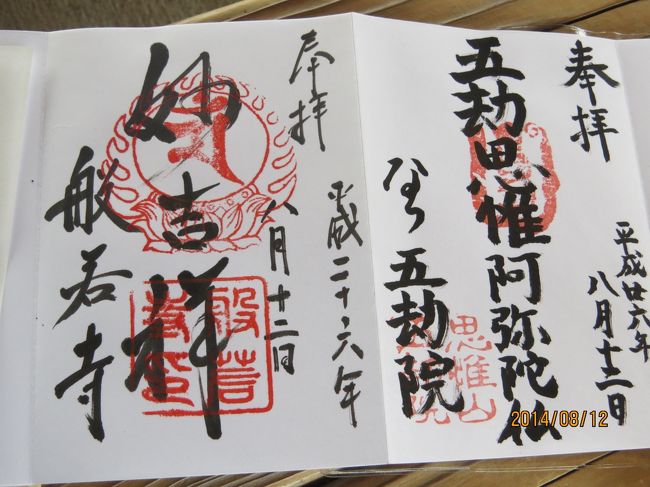 奉拝
平成廿六年
八月十二日
五劫思惟阿弥陀仏
なら 五劫院
思惟山
奉拝
平成二十六年
八月十二日
妙吉祥
般若寺
2014/08/12